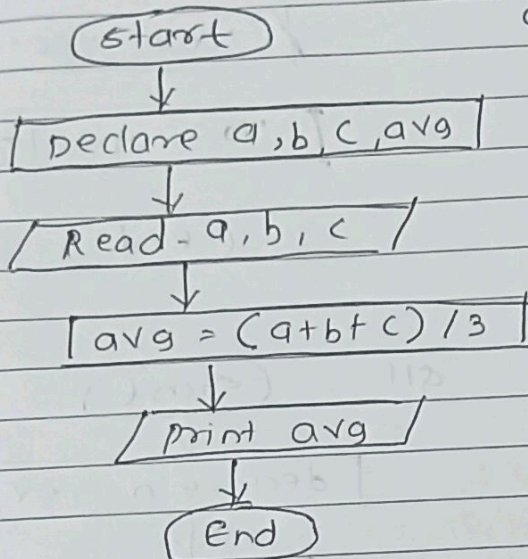 Start
Declare a, b, c, avg
Read a, b, c
avg = (a+b+c) / 3
print avg
End